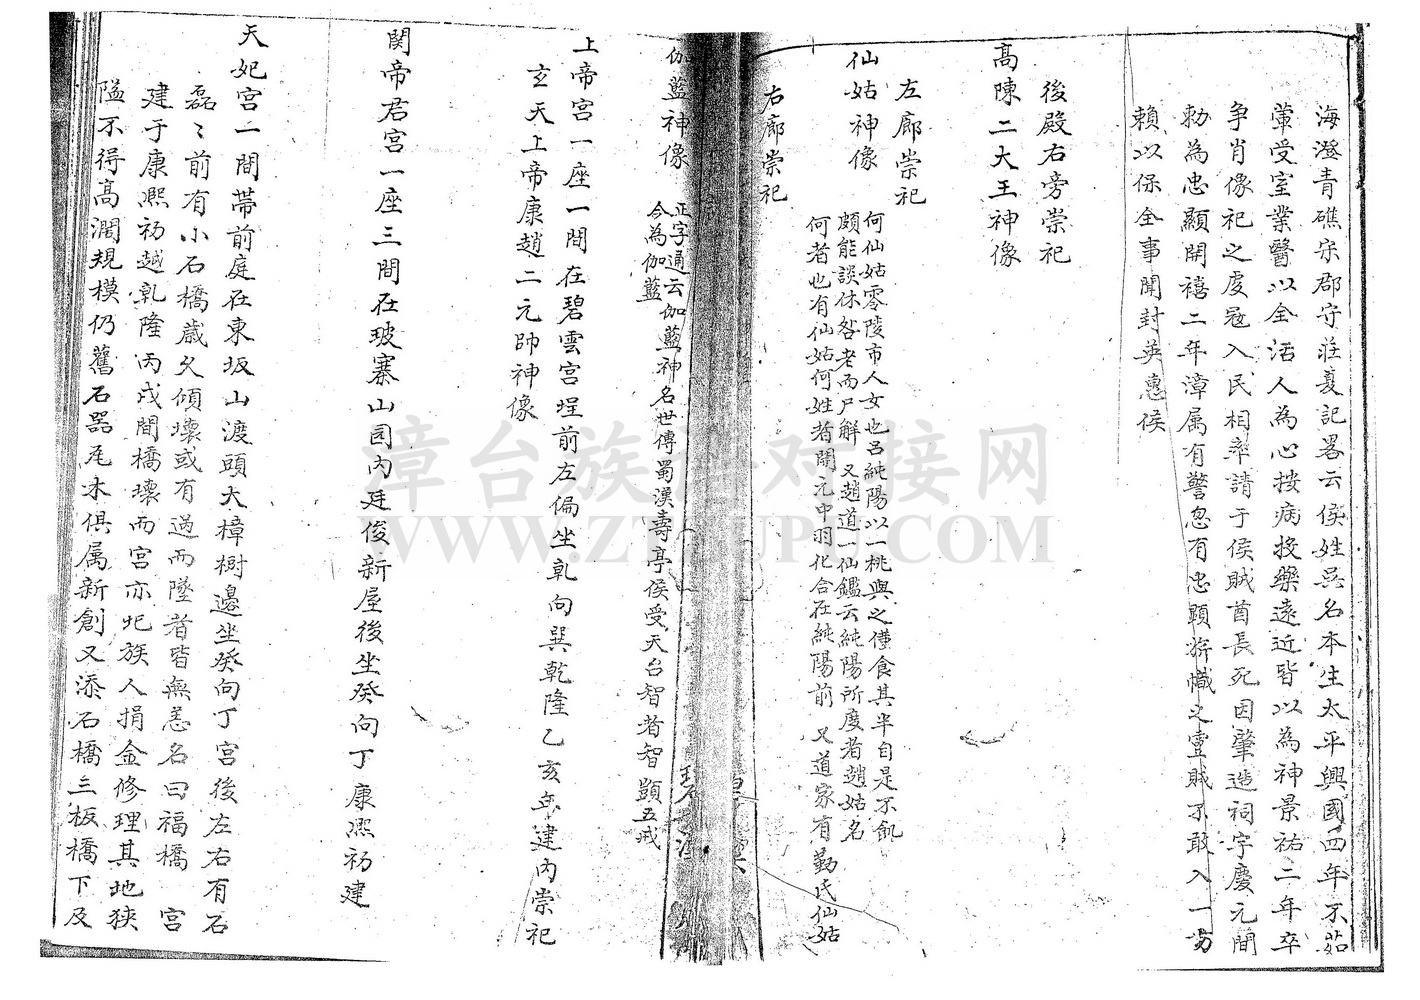 海澄青礁宋郡守莊夏記畧云侯姓吳名本生太平興國四年不茹
葷受室業醫以全活人為心按病投藥遠近皆以為神景祐二年卒
争肖像祀之虔寇入民相率請于侯賊酋長死因肇造祠宇慶元間
勅為忠顯開禧二年漳属有警忽有忠顕旂幟之雲賊不敢入一方
賴以保全事聞封英惠侯
後殿右旁崇祀
高陳二大王神像
左廊崇祀
仙姑神像
何仙姑零陵市人女也呂純陽以一桃與之僅食其半自是不飢
頗能談休咎老而尸解 又趙道一仙鑑云純陽所度者趙姑名
何者也有仙姑何姓者開元中羽化合在純陽前 又道家有勤氏仙姑
右廊崇祀
伽藍神像
正字通云伽藍神名世傳蜀漢壽亭侯受天台智者智顗五戒
今為伽藍
上帝宫一座一間在碧雲宫埕前左偏坐乹向巽乾隆乙亥年建內崇祀
玄天上帝康趙二元帥神像
関帝君宫一座三間在玻寨山园内廷俊新屋後坐癸向丁康熙初建
天妃宫一間帶前庭在東坂山渡頭大樟樹邊坐癸向丁宫後左右有石
磊々前有小石橋歲久傾壞或有過而墜者皆無恙名曰福橋 宫
建于康熙初越乹隆丙戌間橋壞而宫亦圮族人捐金修理其地狹
隘不得高濶規模仍舊石器瓦木俱属新創又添石橋三板橋下及
漳台族譜对接网
WWW.ZTZUPU.COM